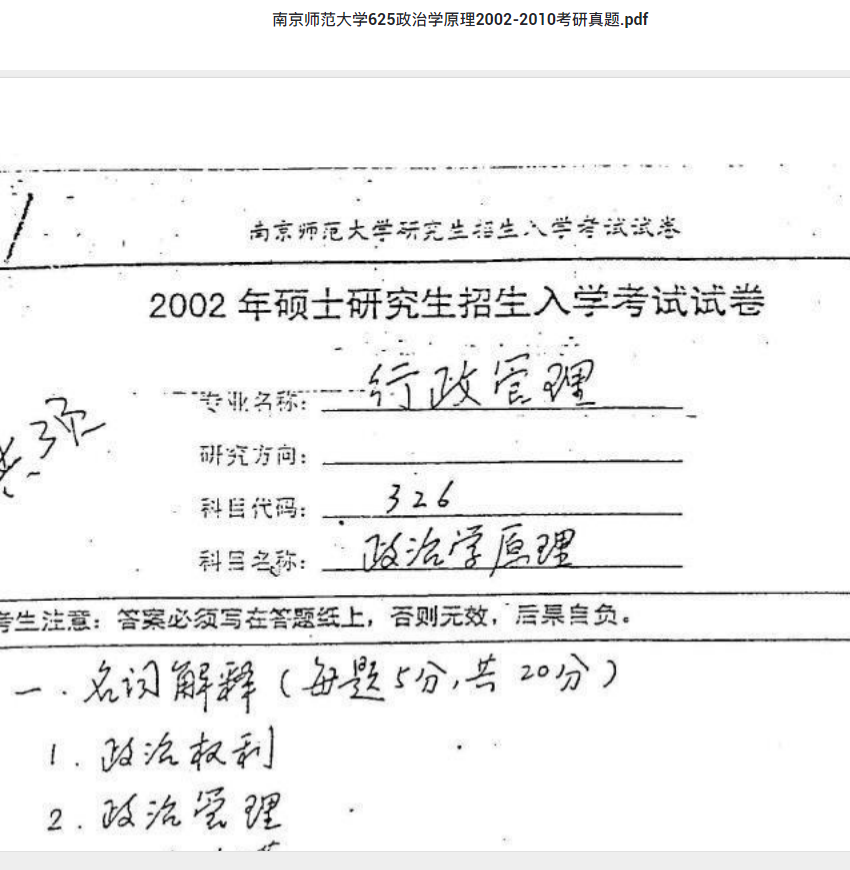 南京师范大学625政治学原理2002-2010考研真题.pdf
南京师范大学研究生招生入学考试试卷
2002 年硕士研究生招生入学考试试卷
专业名称: 行政管理
共3页
研究方向:
科目代码: 326
科目名称: 政治学原理
考生注意: 答案必须写在答题纸上, 否则无效, 后果自负。
一. 名词解释 (每题5分, 共20分)
1. 政治权利
2. 政治管理